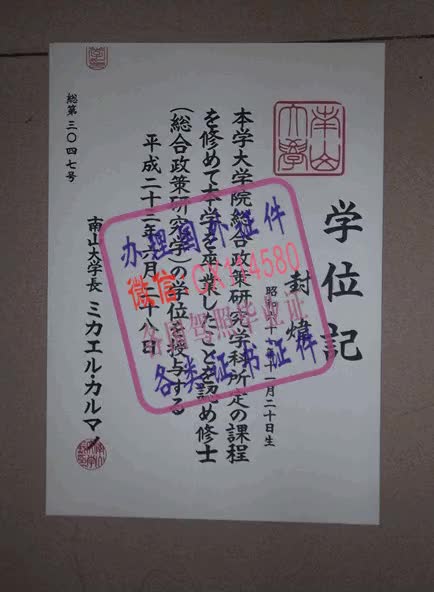 南山
大學
学位記
封煒
昭和四十 年十一月二十日生
本学大学院総合政策研究学科所定の課程
を修めて本学を卒業したことを認め修士
(総合政策研究学)の学位を授与する
平成二十三年六月二十八日
南山大学長 ミカエル・カルマノ
総第三〇四七号
办理国外证件
各国驾照毕业证
各类证书证件